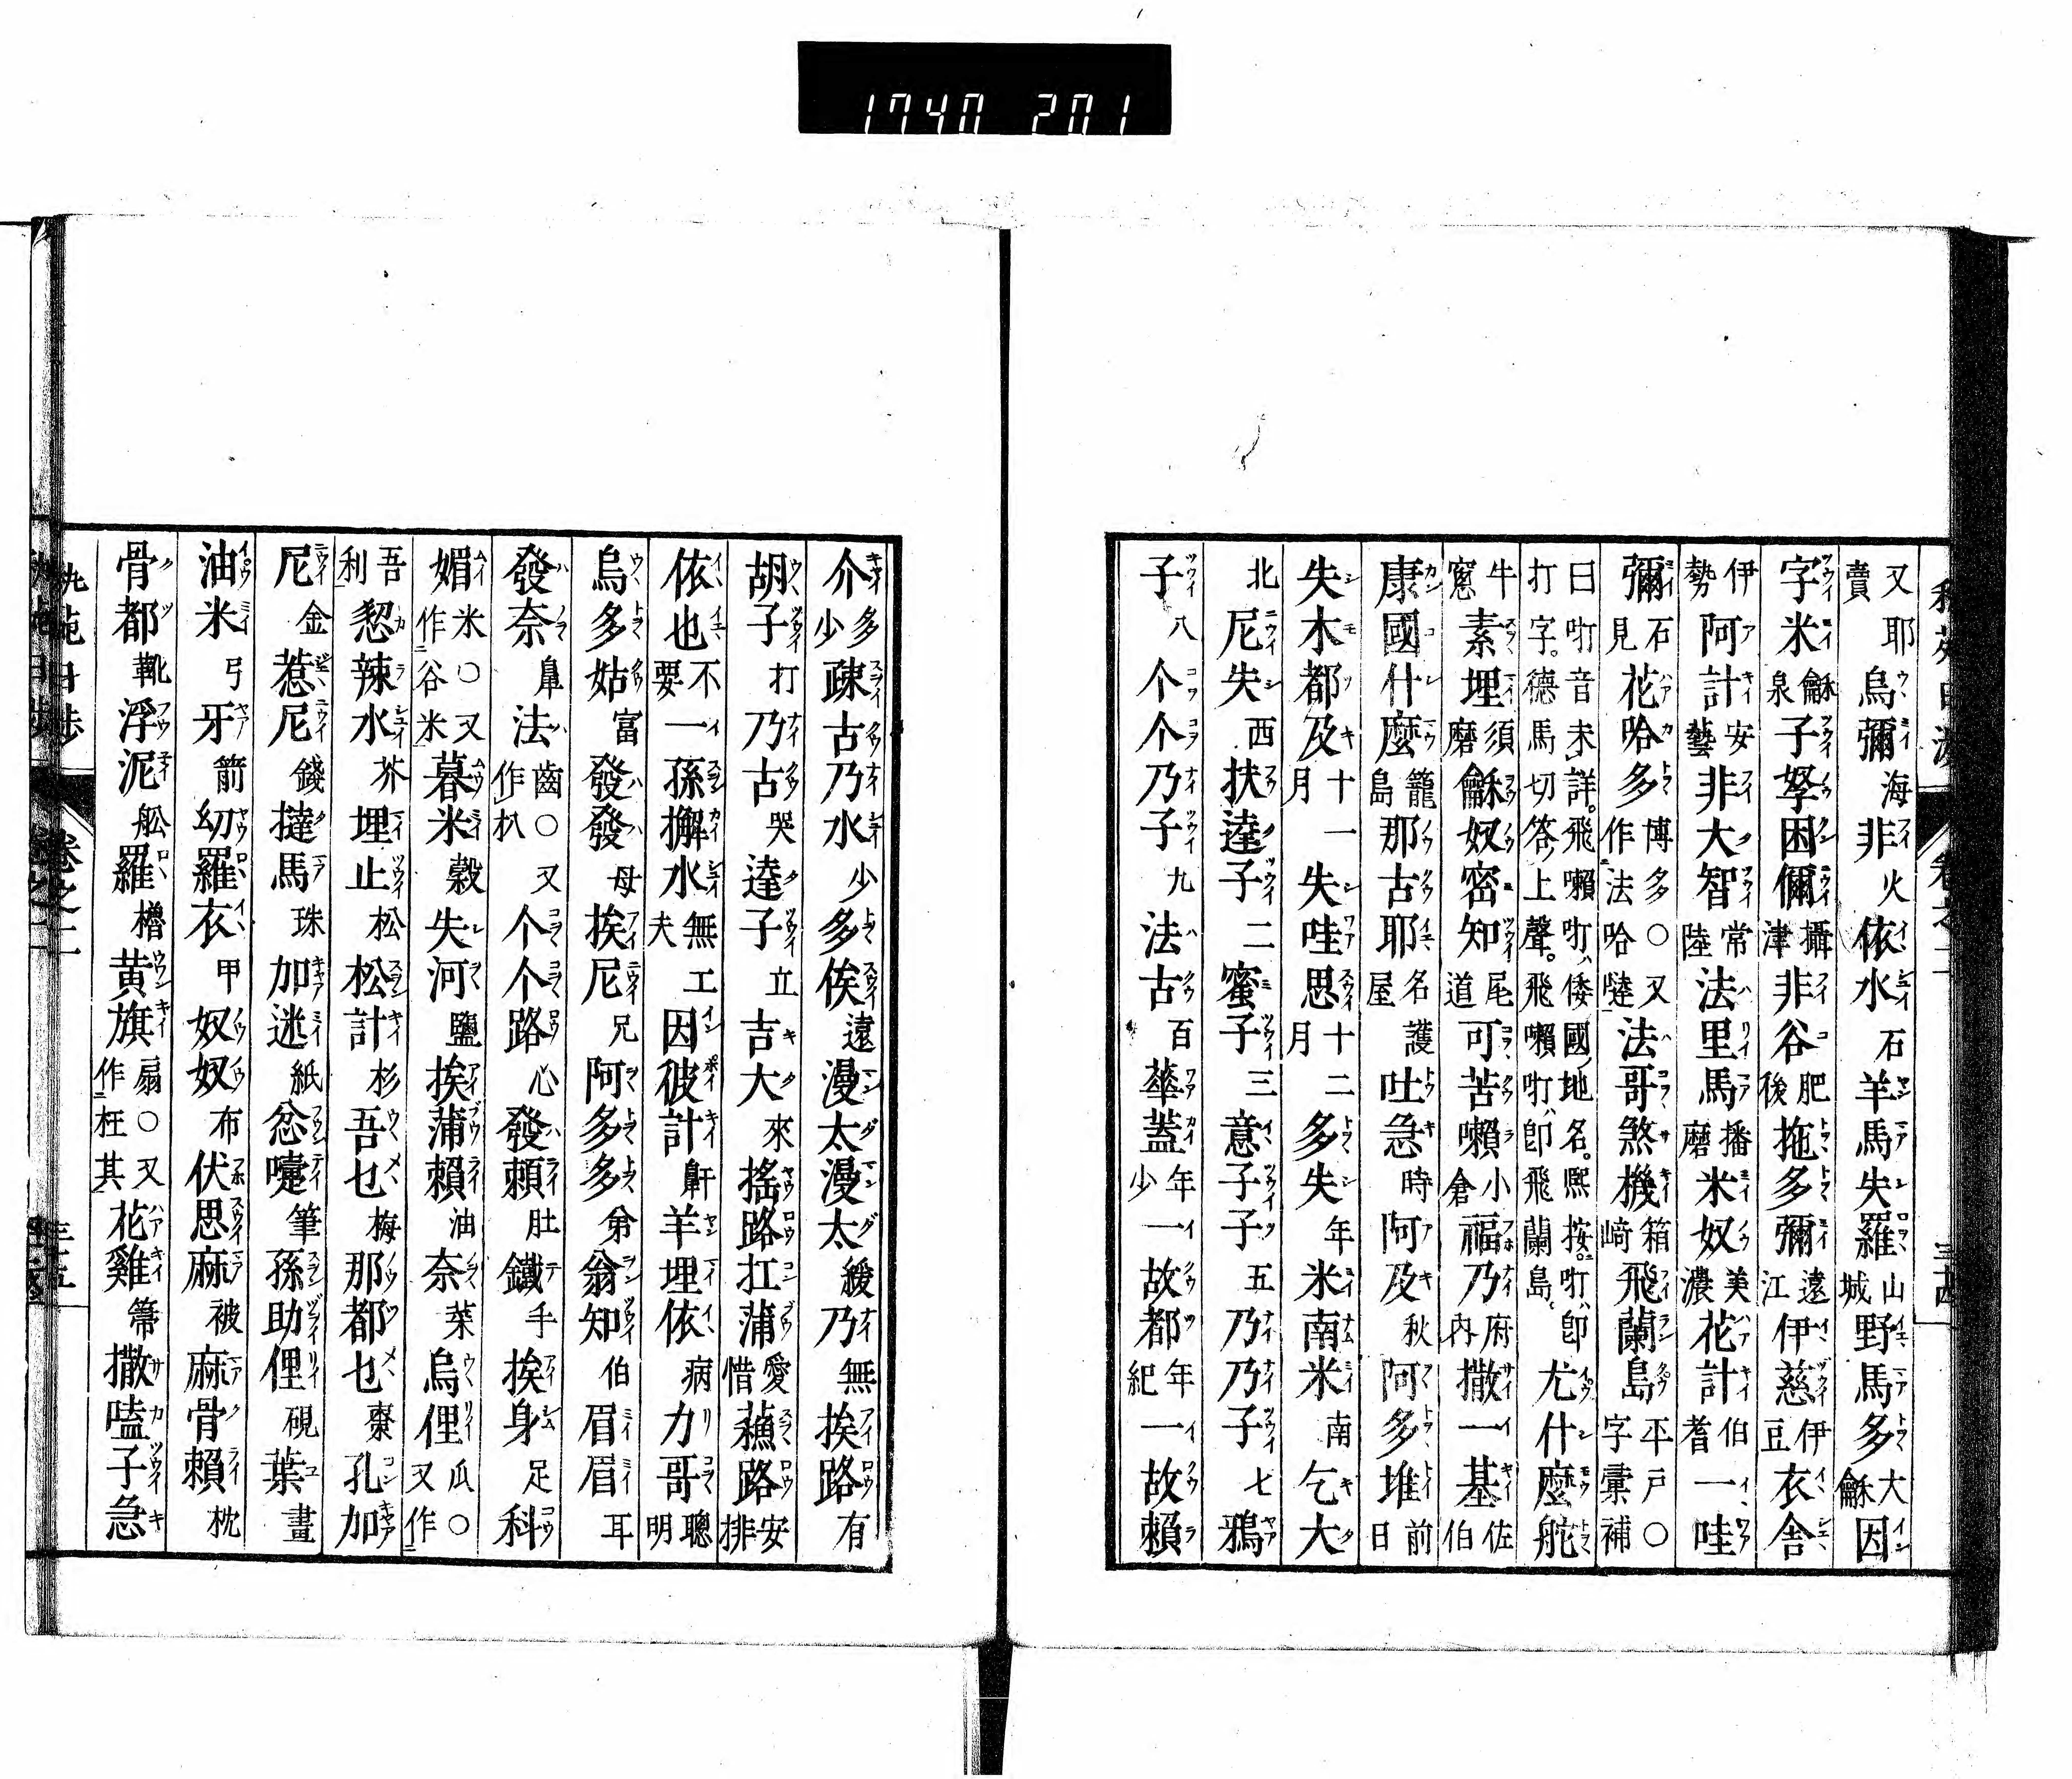 1740 201
又耶賣烏彌海非火依水石羊馬失羅山城野馬多大龢因
字米龢泉子孥困儞攝津非谷肥後拖多彌遠江伊慈伊豆衣舎
伊勢阿計安藝非大智常陸法里馬播磨米奴美濃花計伯耆一哇
彌石見花哈多博多〇又作法哈㒓法哥煞機箱崎飛蘭島平戸〇字彙補
曰㕶音未詳飛嚩㕶倭國地名熙按㕶即打字德馬切答上聲飛嚩㕶即飛蘭島尤什麼舵
牛窓素埋須磨龢奴密知尾道可苦嚩小倉福乃府内撒一基佐伯
康國什麼籠島那古耶名護屋吐急時阿及秋阿多堆前日
失木都及十一月失哇思十二月多失年米南米南乞大
北尼失西扶達子二蜜子三意子子五乃乃子七鴉
子八个个乃子九法古百華蓋年少一故都年紀一故賴
卷之二
介多少疎古乃水少多俟遠漫太漫太緩乃無挨路有
胡子打乃古哭達子立吉大來搖路扛蒲愛惜蘓路安排
依也不要一孫擬水無工夫因彼計鼾羊埋依病力哥聰明
烏多姑富發發母挨尼兄阿多多弟翁知伯眉眉耳
發奈鼻法齒〇又作朳个个路心發賴肚鐵手挨身足科
媚米〇又作谷米暮米穀失河鹽挨蒲賴油奈菜烏俚瓜〇又作
吾利㓞辣水芥埋止松松計杉吾也梅那都也棗孔加
尼金惹尼錢撻馬珠加迷紙忿嚏筆孫助俚硯葉畫
油米弓牙箭幼羅衣甲奴奴布伏思麻被麻骨賴枕
骨都靴浮泥舩羅櫓黄旗扇〇又作枉其花雞箒撒嗑子急
卷之二
三十五